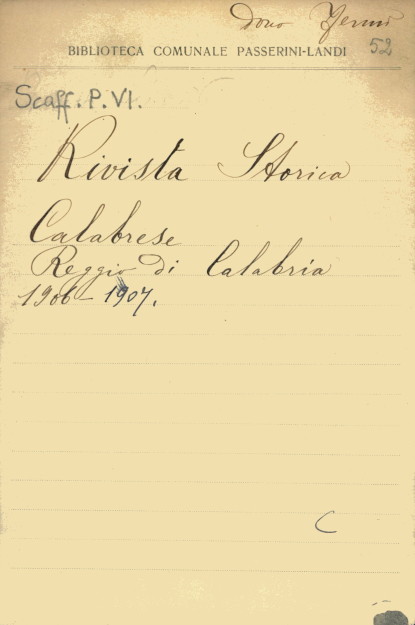 dono
52
BIBLIOTECA COMUNALE PASSERINI-LANDI
Scaff. P. VI.
Rivista Storica
Calabrese
Reggio di Calabria
1906 - 1907.
C